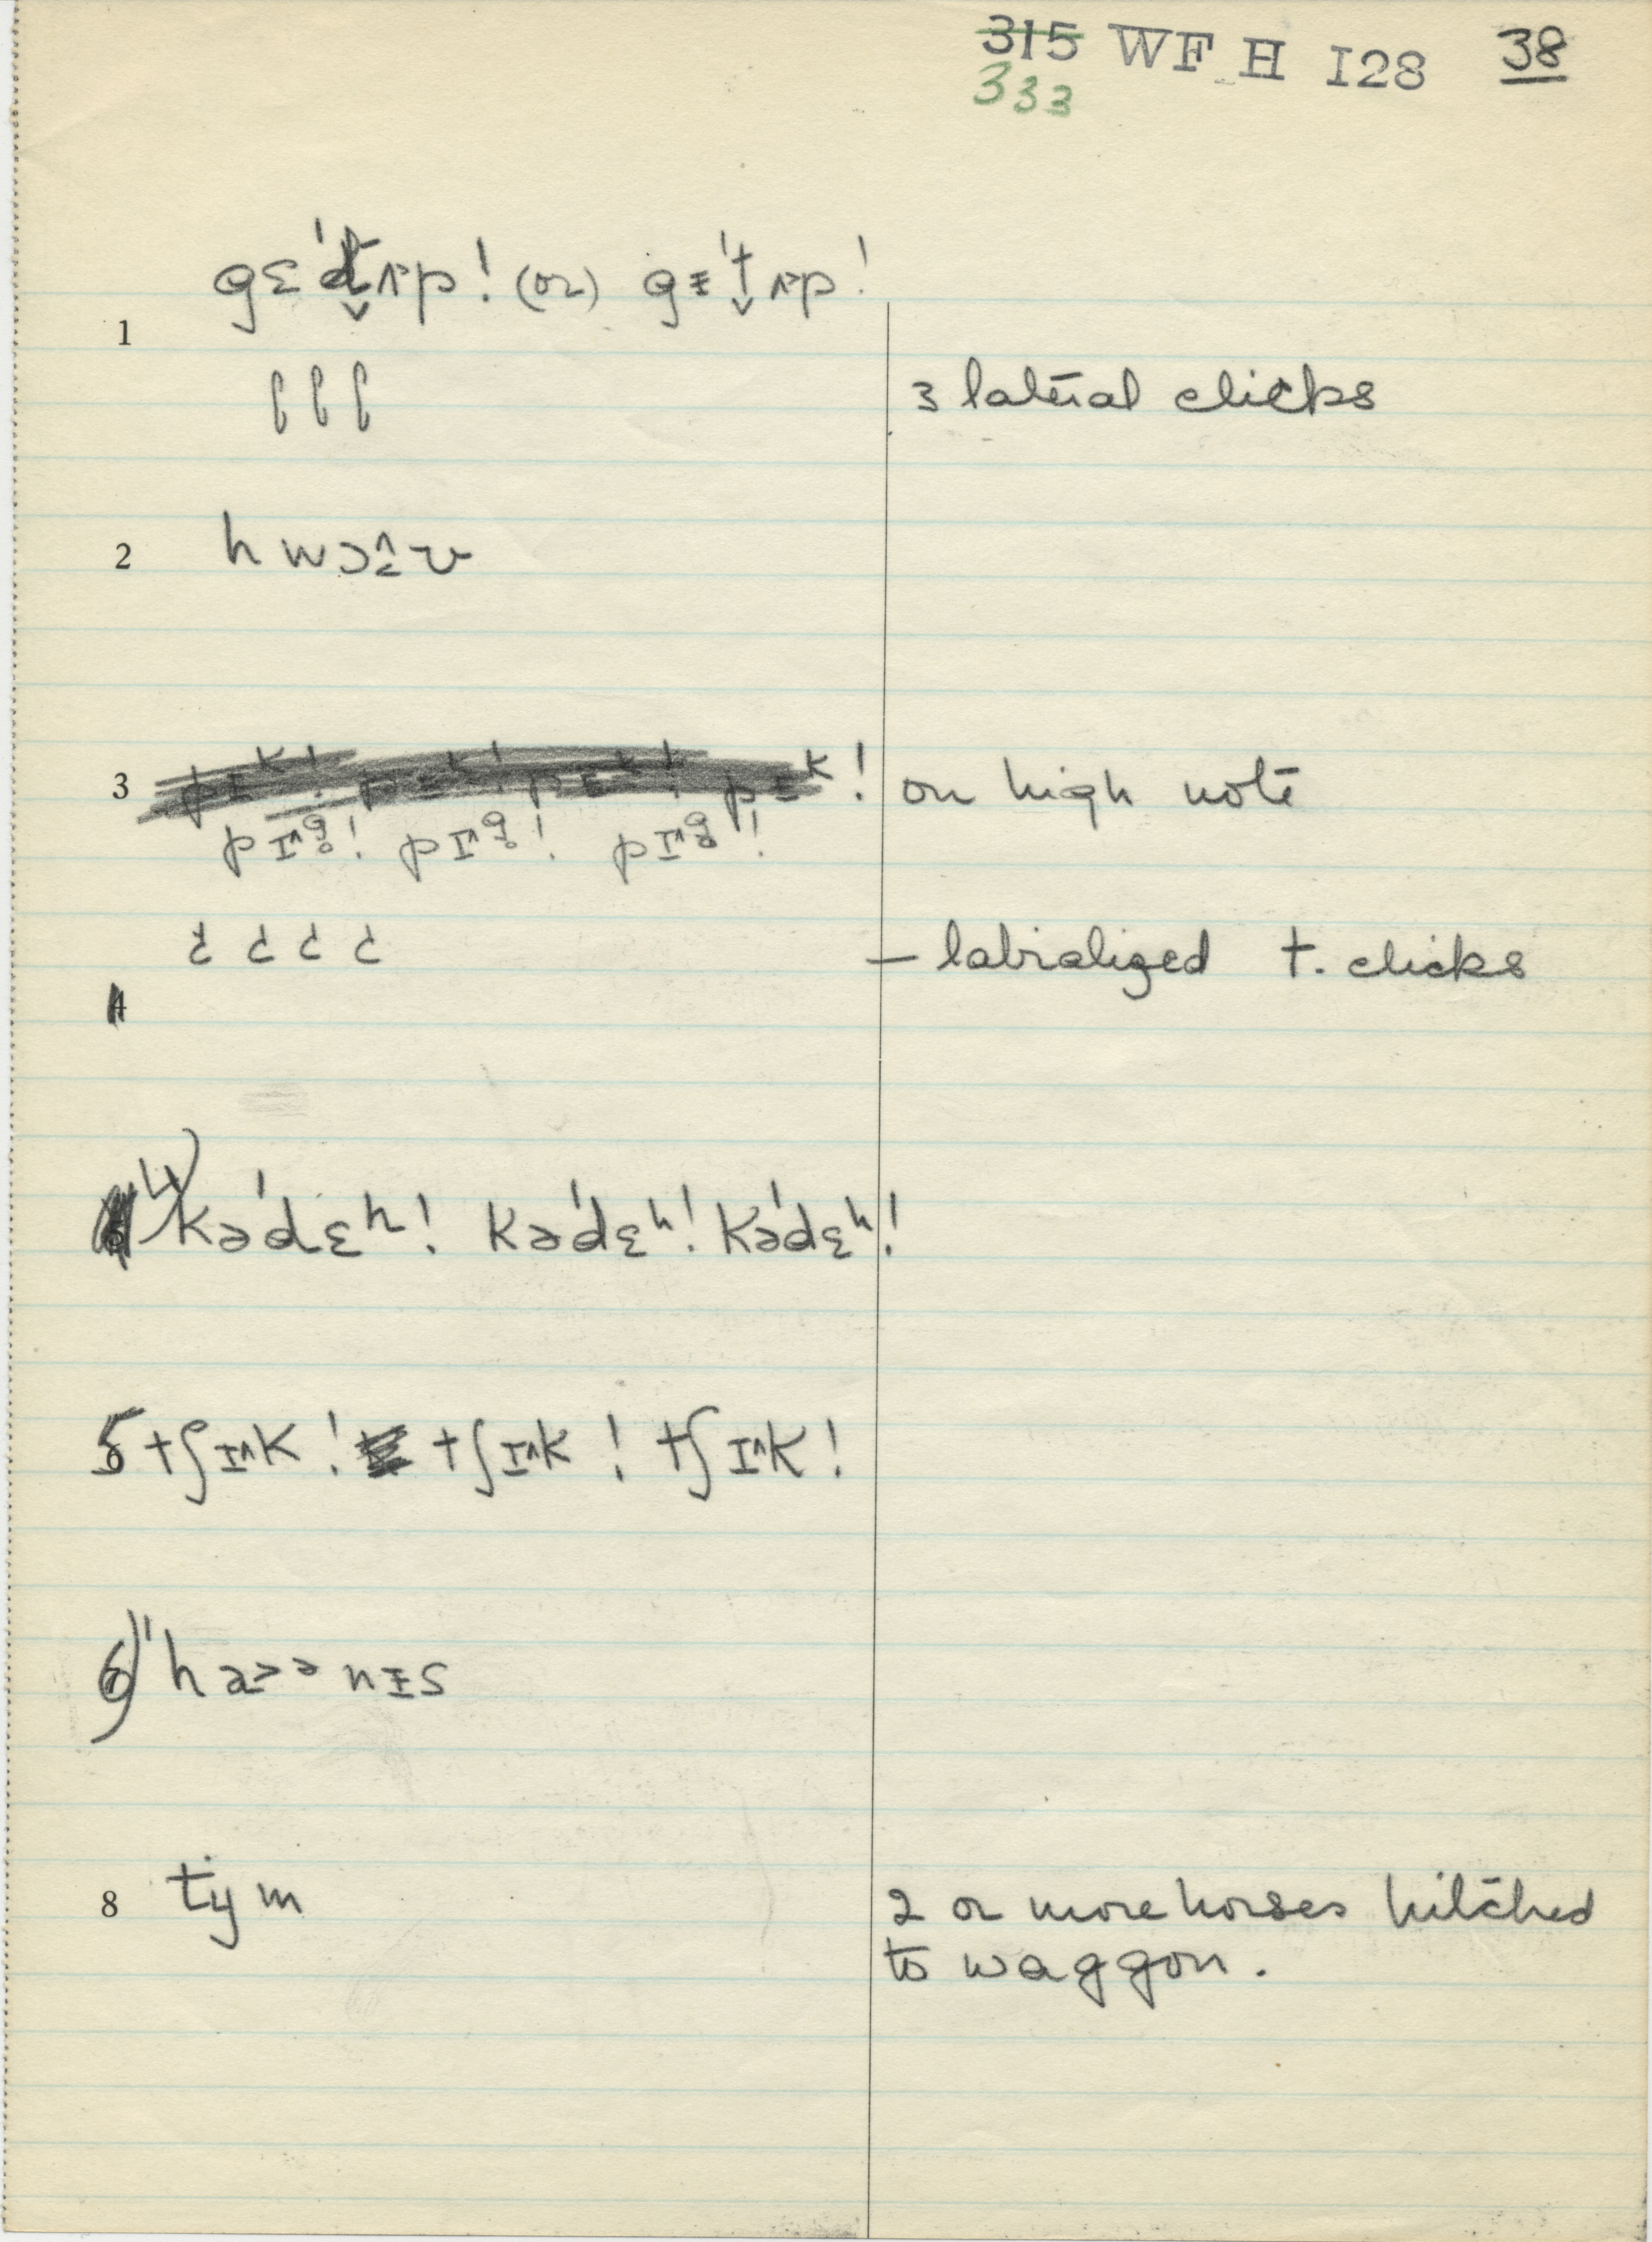 315 WF H 128 38
333
gɛˈt̬ʌ˃p! (or) gᵻˈt̬ʌ˃p!
1
ʖ ʖ ʖ 3 lateral clicks
2 hwɔ
3 on high note
pɪ˄g̥! pɪ˄g̥! pɪ˄g̥!
ʇ ʇ ʇ ʇ – labialized t. clicks
4) kəˈdɛʰ! kəˈdɛʰ! kəˈdɛʰ!
5 tʃɪ˄k! tʃɪ˄k! tʃɪ˄k!
6) ˈha˃ᵊnᵻs
8 tiym 2 or more horses hitched
to waggon.